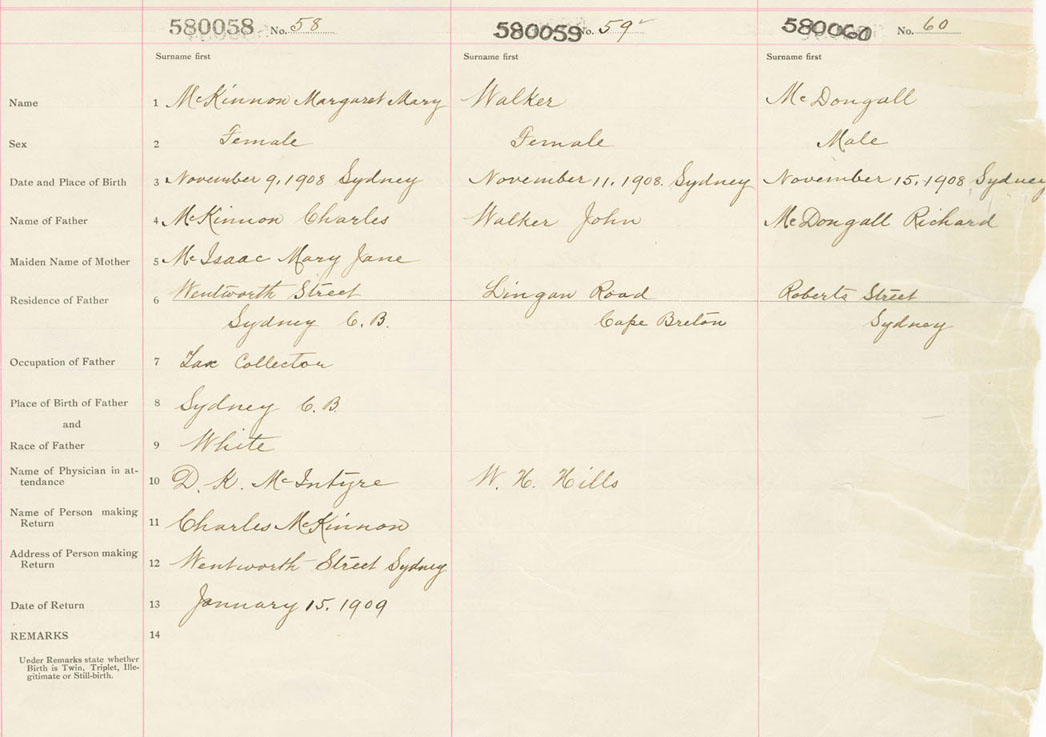 580058 No. 58 580059 No. 59 580060 No. 60
Surname first Surname first Surname first
Name 1 McKinnon Margaret Mary Walker McDongall
Sex 2 Female Female Male
Date and Place of Birth 3 November 9, 1908 Sydney November 11, 1908. Sydney November 15, 1908, Sydney
Name of Father 4 McKinnon Charles Walker John McDongall Richard
Maiden Name of Mother 5 McIsaac Mary Jane
Residence of Father 6 Wentworth Street Lingan Road Roberts Street
Sydney C. B. Cape Breton Sydney
Occupation of Father 7 Tax Collector
Place of Birth of Father 8 Sydney C. B.
and
Race of Father 9 White
Name of Physician in at-
tendance 10 D. K. McIntyre W. H. Hills
Name of Person making
Return 11 Charles McKinnon
Address of Person making
Return 12 Wentworth Street Sydney
Date of Return 13 January 15, 1909
REMARKS 14
Under Remarks state whether
Birth is Twin, Triplet, Ille-
gitimate or Still-birth.